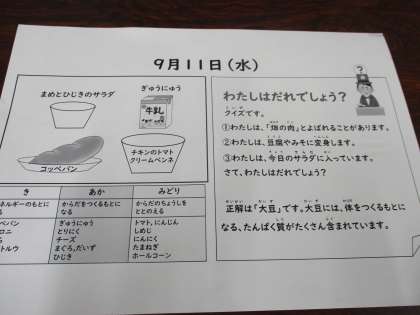 9月11日(水)
まめとひじきのサラダ
ぎゅうにゅう
牛乳
コッペパン
チキンのトマト
クリームペンネ
き
あか
みどり
ネルギーのもとに
からだをつくるもとに
なる
からだのちょうしを
ととのえる
ペパン
ロニ
トルウ
ぎゅうにゅう
とりにく
チーズ
まぐろ,だいず
ひじき
トマト,にんじん
しめじ
にんにく
たまねぎ
ホールコーン
?
わたしはだれでしょう?
クイズです。
①わたしは、「畑の肉」とよばれることがあります。
②わたしは、豆腐やみそに変身します。
③わたしは、今日のサラダに入っています。
さて、わたしはだれでしょう?
正解は「大豆」です。大豆には、体をつくるもとに
なる、たんぱく質がたくさん含まれています。